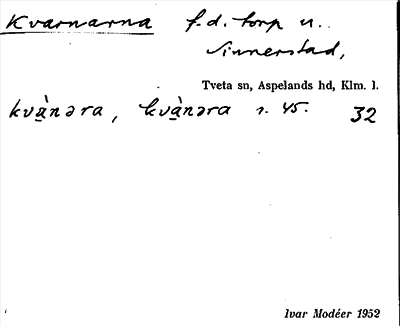 Kvarnarna f.d. torp u.
Tveta sn, Aspelands hd, Klm. l.
kvàn̠əra, kvàn̠əra s. 45. 32
Ivar Modéer 1952